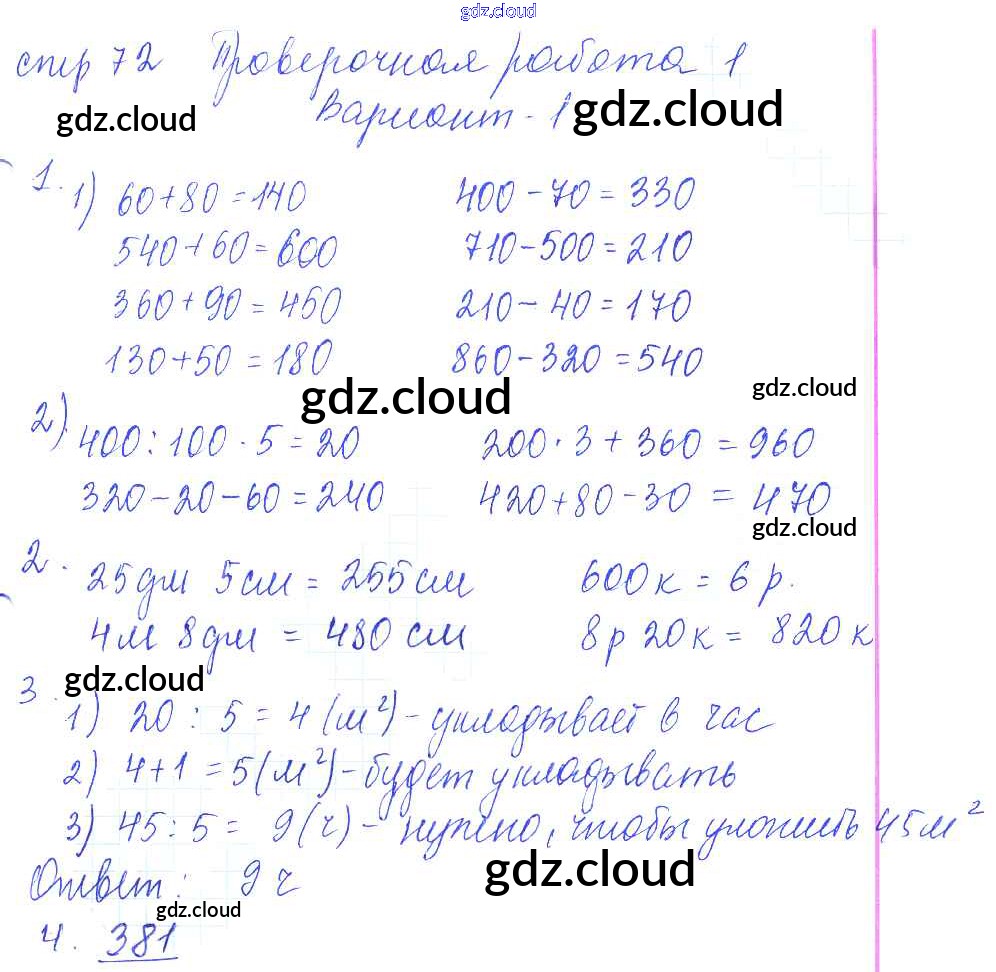 gdz.cloud
стр 72 Проверочная работа 1
gdz.cloud Вариант - 1 gdz.cloud
1. 1) 60+80=140 400-70=330
540+60=600 710-500=210
360+90=450 210-40=170
130+50=180 860-320=540
gdz.cloud gdz.cloud
2). 400:100·5=20 200·3+360=960
320-20-60=240 420+80-30=470
gdz.cloud
2. 25дм 5см=255см 600к=6р.
4м 8дм=480см 8р 20к=820к
gdz.cloud
3. 1) 20:5=4(м²)-укладывает в час
2) 4+1=5(м²)-будет укладывать
3) 45:5=9(ч)-нужно, чтобы уложить 45м²
gdz.cloud
Ответ: 9ч
gdz.cloud
4. 381